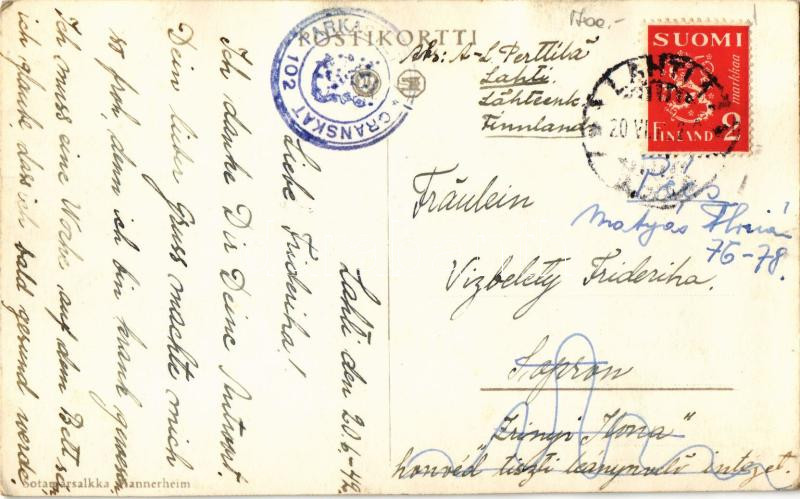 1700.-
POSTIKORTTI
TARKAST
GRANSKAT
102
Abs: A-L Perttilä
Lahti
Lähteenk.
Finnland
SUOMI
markkaa
FINLAND 2
LAHTI
20 VI
Lahti den 20 6-42.
Liebe Friderika!
Ich danke Dir Deine Antwort.
Dein lieber Gruss machte mich
so froh, denn ich bin krank gewesen.
Ich muss eine Woche auf dem Bett sein
ich glaube, dass ich bald gesund werde.
Sotamarsalkka Mannerheim
Fräulein
Vizbelety Friderika.
Sopron
"Zrinyi Ilona"
honvéd tiszti leánynevelő intézet.
Pécs
Mátyás Flórián
76-78.